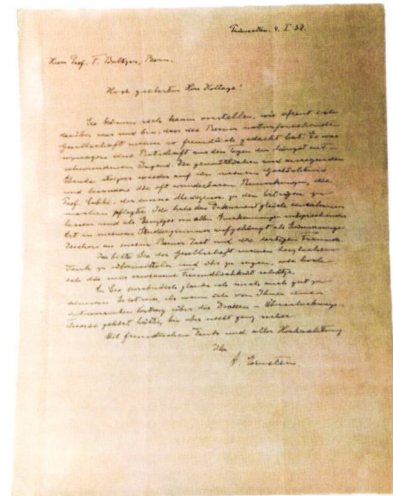 Princeton, 4. I. 53.
Herrn Prof. F. Baltzer, Bern.
Hoch geehrter Herr Kollege!
Sie können sich kaum vorstellen, wie erfreut ich
darüber war und bin, dass die Berner naturforschende
Gesellschaft meiner so freundlich gedacht hat. Es war
sozusagen eine Botschaft aus den Tagen der längst ent-
schwundenen Jugend. Die gemütlichen und anregenden
Abende steigen wieder auf vor meinem
und besonders die oft wunderbaren Bemerkungen, die
Prof. Sahli, der innere Mediziner, zu den Vorträgen zu
machen pflegte. Ich habe das Dokument gleich einrahmen
lassen und als einziges von allen Anerkennungen entsprechender
Art in meinem Studierzimmer aufgehängt als Erinnerungs-
zeichen an meine Berner Zeit und die dortigen Freunde.
Ich bitte Sie der Gesellschaft meinen herzlichen
Dank zu übermitteln und ihr zu sagen, wie hoch
ich die mir erwiesene Freundlichkeit schätze.
An Sie persönlich glaube ich mich auch gut zu
erinnern. Es ist mir, als wenn ich von Ihnen einen
interessanten Vortrag über die
gehört hätte, bin aber nicht ganz sicher.
Mit freundlichem Dank und aller Hochachtung
Ihr
A. Einstein.